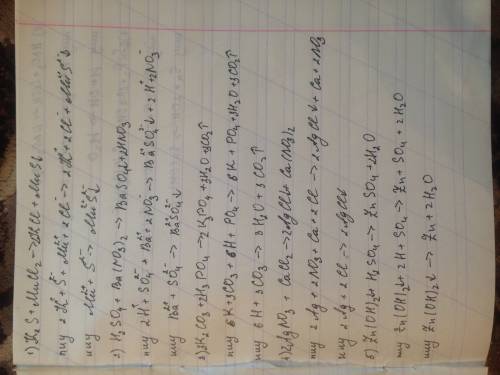 1) K₂S + MnCl₂ → 2KCl + MnS↓
пиу 2K⁺ + S²⁻ + Mn²⁺ + 2Cl⁻ → 2K⁺ + 2Cl⁻ + Mn²⁺S²⁻↓
киу Mn²⁺ + S²⁻ → Mn²⁺S²⁻↓
2) H₂SO₄ + Ba(NO₃)₂ → BaSO₄↓ + 2HNO₃
пиу 2H⁺ + SO₄²⁻ + Ba²⁺ + 2NO₃⁻ → Ba²⁺SO₄²⁻↓ + 2H⁺ + 2NO₃⁻
киу Ba²⁺ + SO₄²⁻ → Ba²⁺SO₄²⁻↓
3) 3K₂CO₃ + 2H₃PO₄ → 2K₃PO₄ + 3H₂O + 3CO₂↑
пиу 6K + 3CO₃ + 6H + PO₄ → 6K + PO₄ + 3H₂O + 3CO₂↑
киу 6H + 3CO₃ → 3H₂O + 3CO₂↑
4) 2AgNO₃ + CaCl₂ → 2AgCl↓ + Ca(NO₃)₂
пиу 2Ag + 2NO₃ + Ca + 2Cl → 2AgCl↓ + Ca + 2NO₃
киу 2Ag + 2Cl → 2AgCl↓
5) Zn(OH)₂↓ + H₂SO₄ → ZnSO₄ + 2H₂O
пиу Zn(OH)₂↓ + 2H + SO₄ → Zn + SO₄ + 2H₂O
киу Zn(OH)₂↓ → Zn + 2H₂O